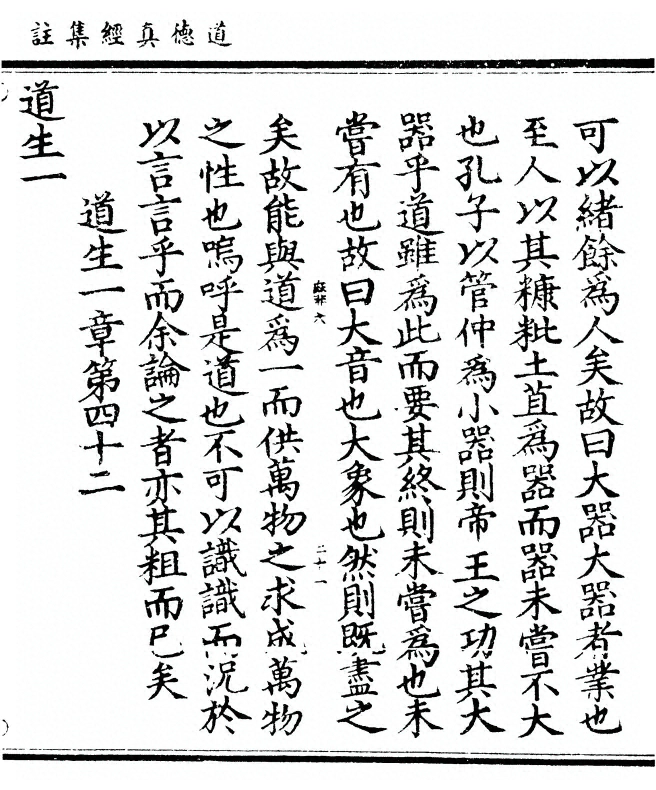 道德真經集註
可以緒餘為人矣故曰大器大器者業也
至人以其糠粃土苴為器而器未嘗不大
也孔子以管仲為小器則帝王之功其大
器乎道雖為此而要其終則未嘗為也未
嘗有也故曰大音也大象也然則既盡之
麻非六
二十一
矣故能與道為一而供萬物之求成萬物
之性也嗚呼是道也不可以識識而況於
以言言乎而余論之者亦其粗而已矣
道生一章第四十二
道生一